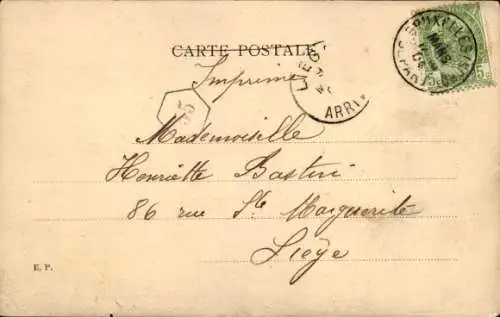 CARTE POSTALE
Imprimé
35
ARRIV
BRUXELLES
MARS
5
Mademoiselle
Henriette Bastin
86 rue Ste Marguerite
Liège
E. P.